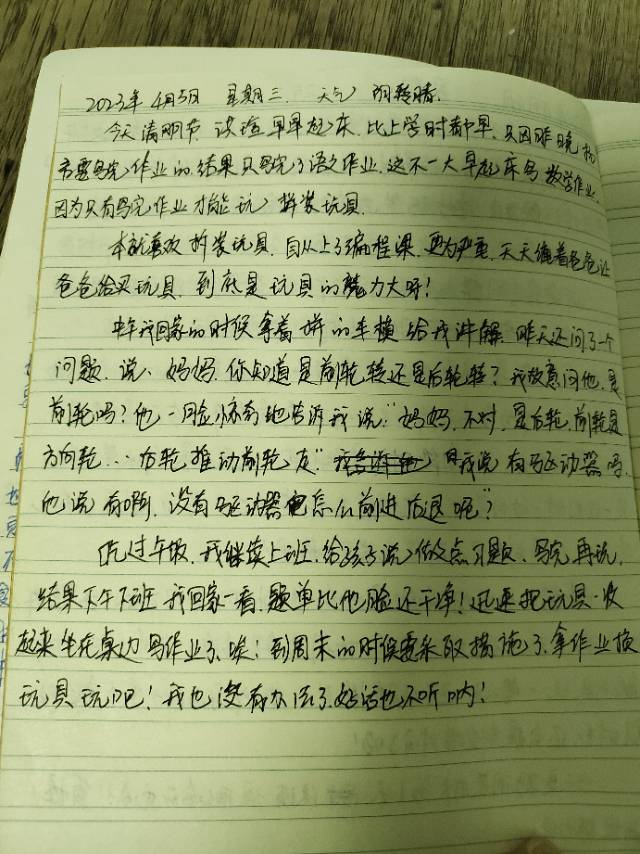 2023年4月5日 星期三. 天气 阴转晴.
今天清明节, 该谊早早起床. 比上学时都早. 只因昨晚
需要写完作业的. 结果只写完了语文作业. 这不一大早起床写数学作业.
因为只有写完作业才能玩 拆装玩具.
本就喜欢拆装玩具. 自从上了编程课. 更为严重. 天天缠着爸爸让
爸爸给买玩具. 到底是玩具的魔力大呀!
中午我回家的时候拿着拼的车模给我讲解. 昨天还问了一个
问题. 说、妈妈. 你知道是前轮转还是后轮转? 我故意问他. 是
前轮吗? 他一脸惊奇地告诉我说:"妈妈. 不对. 是后轮. 前轮是
方向轮… 后轮推动前轮走" 我说 有马区动器吗.
他说有啊. 没有马区动器怎么前进后退呢?"
吃过午饭. 我继续上班. 给孩子说 做点习题. 写完再玩.
结果下午下班我回家一看. 题单比他脸还干净! 迅速把玩具一收
起来坐在桌边写作业了. 唉! 到周末的时候需采取措施了. 拿作业换
玩具玩吧! 我也没有办法了. 好话也不听呐!